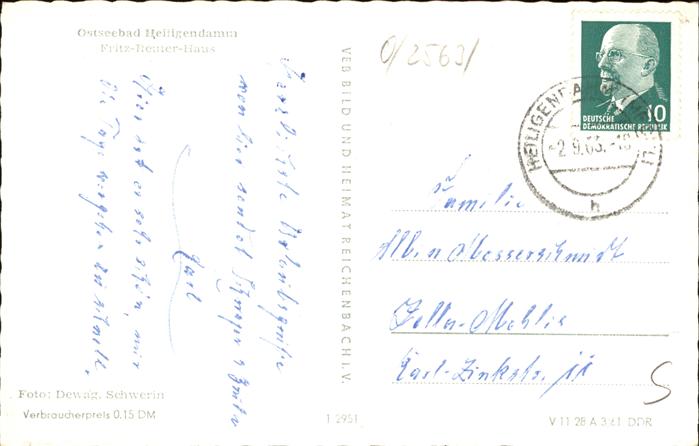 Ostseebad Heiligendamm
Fritz-Reuter-Haus
0/2563/
Herzlichste Urlaubsgrüße
von hier sendet Schwager &
Karl
Hier ist es sehr schön, nur
die Tage vergehen zu schnell.
VEB BILD UND HEIMAT REICHENBACH I. V.
DEUTSCHE
DEMOKRATISCHE REPUBLIK
10
HEILIGENDAMM
-2.9.63.-18
h
Familie
Albin Messerschmidt
Zella-Mehlis
Karl-Zinkstr. 11
S
Foto: Dewag, Schwerin
Verbraucherpreis 0.15 DM
1 2951
V 11 28 A 3/61 DDR